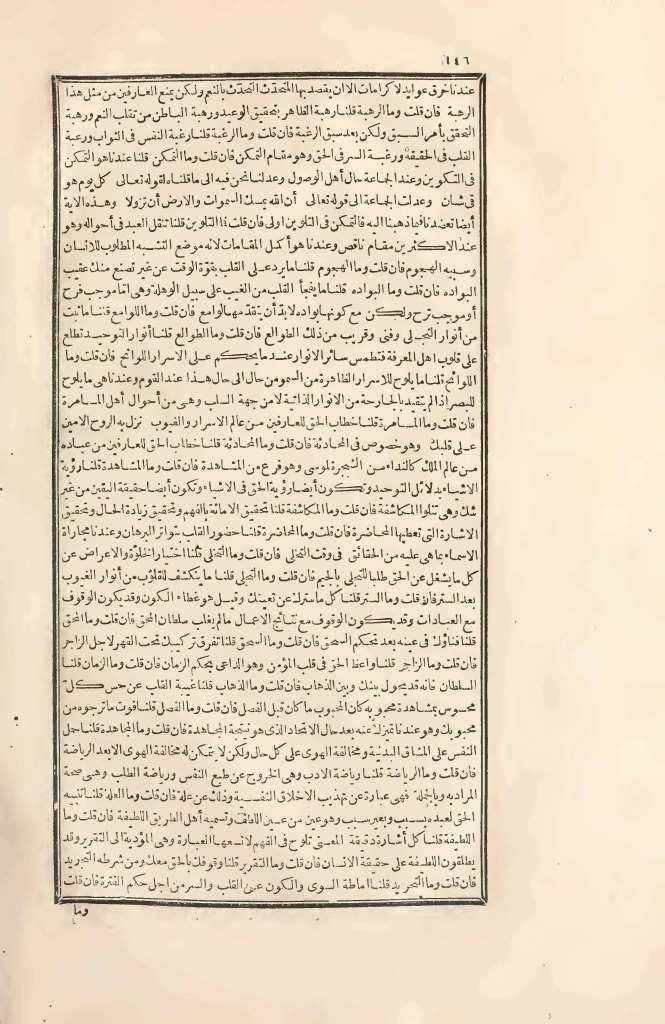 ١٤٦
عندنا خرق عوايد لا كرامات الا ان يقصد بها المتحدث التحدث بالنعم ولكن يمنع العارفين من مثل هذا
الرهبة فان قلت وما الرهبة قلنا رهبة الظاهر بتحقيق الوعيد ورهبة الباطن من تقلب النعم ورهبة
التحقق بأمر السبق ولكن بعد سبق الرغبة فان قلت وما الرغبة قلنا رغبة النفس فى الثواب ورغبة
القلب فى الحقيقة ورغبة السر فى الحق وهو مقام التمكن فان قلت وما التمكن قلنا عندنا هو التمكن
فى التكوين وعند الجماعة حال أهل الوصول وعدلنا نحن فيه الى ما قلناه لقوله تعالى كل يوم هو
فى شان وعدلت الجماعة الى قوله تعالى أن الله يمسك السموات والارض أن تزولا وهذه الاية
أيضا تعضدنا فيما ذهبنا اليه فالتمكن فى التلوين اولى فان قلت فما التلوين قلنا تنقل العبد فى أحواله وهو
عند الاكثرين مقام ناقص وعندنا هو أكمل المقامات لانه موضع التشبه المطلوب للانسان
وسببه الهجوم فان قلت وما الهجوم قلنا ما يرد على القلب بقوة الوقت عن غير تصنع منك عقيب
البواده فان قلت وما البواده قلنا ما يفجأ القلب من الغيب على سبيل الوهلة وهى اما موجب فرح
أو موجب ترح ولكن مع كونها بواده لابد أن يتقدمها لوامع فان قلت وما اللوامع قلنا ما ثبت
من أنوار التجلى وفنى وقريب من ذلك الطوالع فان قلت وما الطوالع قلنا أنوار التوحيد تطلع
على قلوب اهل المعرفة فتطمس سائر الانوار عند ما يحكم على الاسرار اللوائح فان قلت وما
اللوائح قلنا ما يلوح للاسرار الظاهرة من السمو من حال الى حال هذا عند القوم وعندنا هى ما يلوح
للبصر اذا لم يتقيد بالجارحة من الانوار الذاتية لا من جهة السلب وهى من أحوال أهل المسامرة
فان قلت وما المسامرة قلنا خطاب الحق للعارفين من عالم الاسرار والغيوب نزل به الروح الامين
على قلبك وهو خصوص فى المحادثة فان قلت وما المحادثة قلنا خطاب الحق للعارفين من عباده
من عالم الملك كالنداء من الشجرة لموسى وهو فرع من المشاهدة فان قلت وما المشاهدة قلنا رؤية
الاشياء بدلائل التوحيد وتكون أيضا رؤية الحق فى الاشياء وتكون أيضا حقيقة اليقين من غير
شك وهى تتلوا المكاشفة فان قلت وما المكاشفة قلنا تحقيق الامانة بالفهم وتحقيق زيادة الحال وتحقيق
الاشارة التى تعطيها المحاضرة فان قلت وما المحاضرة قلنا حضور القلب بتواتر البرهان وعندنا مجاراة
الاسماء بما هى عليه من الحقائق فى وقت التخلى فان قلت وما التخلى قلنا اختيار الخلوة والاعراض عن
كل ما يشغل عن الحق طلبا للتجلى بالجيم فان قلت وما التجلى قلنا ما ينكشف للقلوب من أنوار الغيوب
بعد الستر فان قلت وما الستر قلنا كل ما سترك عن تعينك وقيل هو غطاء الكون وقد يكون الوقوف
مع العبادات وقد يكون الوقوف مع نتائج الاعمال ما لم يغلب سلطان المحق فان قلت وما المحق
قلنا فناؤك فى عينه بعد تحكم السحق فان قلت وما السحق قلنا تفرق تركيبك تحت القهر لاجل الزاجر
فان قلت وما الزاجر قلنا واعظ الحق فى قلب المؤمن وهو الداعى بحكم الزمان فان قلت وما الزمان قلنا
السلطان فانه قد يحول بينك وبين الذهاب فان قلت وما الذهاب قلنا غيبة القلب عن حس كل
محسوس بمشاهدة محبوبه كان المحبوب ما كان قبل الفصل فان قلت وما الفصل قلنا فوت ما ترجوه من
محبوبك وهو عندنا تميزك عنه بعد حال الاتحاد الذى هو نتيجة المجاهدة فان قلت وما المجاهدة قلنا حمل
النفس على المشاق البدنية ومخالفة الهوى على كل حال ولكن لا يتمكن له مخالفة الهوى الا بعد الرياضة
فان قلت وما الرياضة قلنا رياضة الادب وهى الخروج عن طبع النفس ورياضة الطلب وهى صحة
المراد به وبالجملة فهى عبارة عن تهذيب الاخلاق النفسية وذلك عن علة فان قلت وما العلة قلنا تنبيه
الحق لعبده بسبب وبغير سبب وهو عين من عين اللطف وتسميه أهل الطريق اللطيفة فان قلت وما
اللطيفة قلنا كل أشارة دقيقة المعنى تلوح فى الفهم لا تسعها العبارة وهى المؤدية الى التقرير وقد
يطلقون اللطيفة على حقيقة الانسان فان قلت وما التقرير قلنا وقوفك بالحق معك ومن شرطه التجريد
فان قلت وما التجريد قلنا اماطة السوى والكون عن القلب والسر من اجل حكم الفترة فان قلت
وما